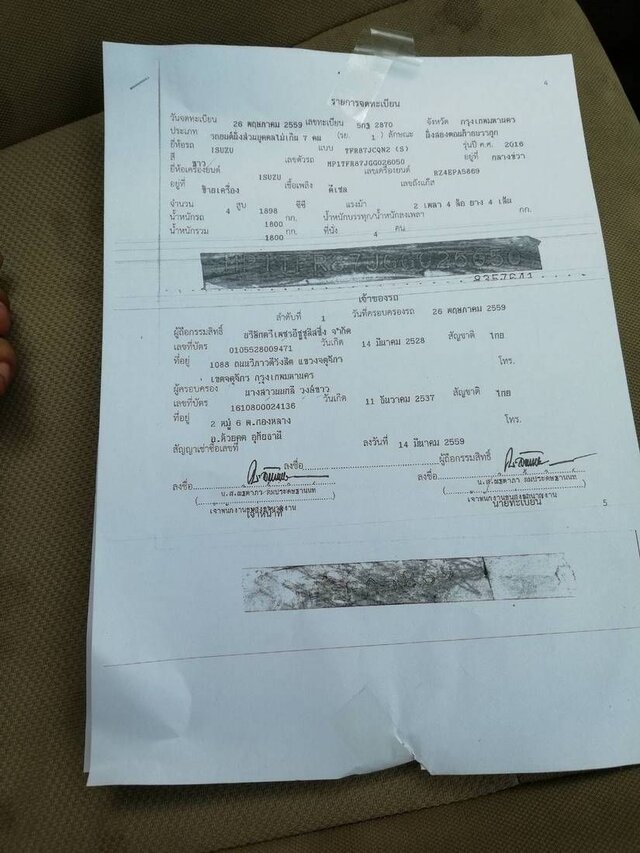 4
รายการจดทะเบียน
วันจดทะเบียน 26 พฤษภาคม 2559 เลขทะเบียน 5กว 2870 จังหวัด กรุงเทพมหานคร
ประเภท รถยนต์นั่งส่วนบุคคลไม่เกิน 7 คน (รย. 1) ลักษณะ นั่งสองตอนท้ายบรรทุก
ยี่ห้อรถ ISUZU แบบ TFR87JCQN2 (S) รุ่นปี ค.ศ. 2016
สี ขาว เลขตัวรถ MP1TFR87JGG026050 อยู่ที่ กลางขวา
ยี่ห้อเครื่องยนต์ ISUZU เลขเครื่องยนต์ RZ4EPA5869
อยู่ที่ ซ้ายเครื่อง เชื้อเพลิง ดีเซล เลขถังแก๊ส
จำนวน 4 สูบ 1898 ซีซี แรงม้า 2 เพลา 4 ล้อ ยาง 4 เส้น
น้ำหนักรถ 1800 กก. น้ำหนักบรรทุก/น้ำหนักลงเพลา กก.
น้ำหนักรวม 1800 กก. ที่นั่ง 4 คน
8357641
เจ้าของรถ
ลำดับที่ 1 วันที่ครอบครองรถ 26 พฤษภาคม 2559
ผู้ถือกรรมสิทธิ์ บริษัทตรีเพชรอีซูซุลิสซิ่ง จำกัด
เลขที่บัตร 0105528009471 วันเกิด 14 มีนาคม 2528 สัญชาติ ไทย
ที่อยู่ 1088 ถนนวิภาวดีรังสิต แขวงจตุจักร โทร.
เขตจตุจักร กรุงเทพมหานคร
ผู้ครอบครอง นางสาวผกาลี วงค์ขาว
เลขที่บัตร 1610800024136 วันเกิด 11 ธันวาคม 2537 สัญชาติ ไทย
ที่อยู่ 2 หมู่ 6 ต.ทองหลาง โทร.
อ.ห้วยคต อุทัยธานี
สัญญาเช่าซื้อเลขที่ ลงวันที่ 14 มีนาคม 2559
ลงชื่อ ผู้ถือกรรมสิทธิ์
ลงชื่อ ลงชื่อ
เจ้าพนักงานขนส่งชำนาญงาน เจ้าพนักงานขนส่งชำนาญงาน
เจ้าหน้าที่ นายทะเบียน
5